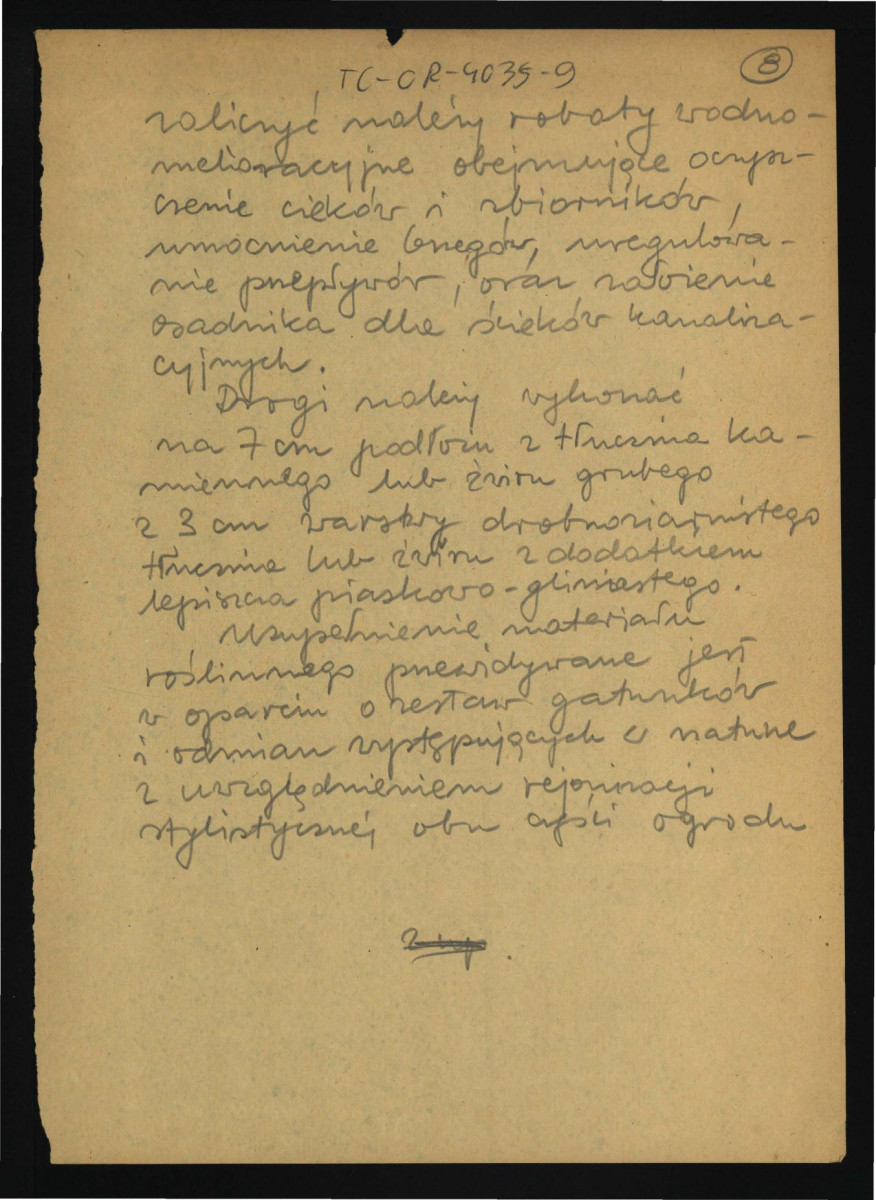 TC-OR-4035-9
8
zaliczyć należy roboty wodno-
melioracyjne obejmujące oczysz-
czenie cieków i zbiorników,
umocnienie brzegów, uregulowa-
nie przepływów, oraz założenie
osadnika dla ścieków kanaliza-
cyjnych.
Drogi należy wykonać
na 7 cm podłożu z tłucznia ka-
miennego lub żwiru grubego
z 3 cm warstwy drobnoziarnistego
tłucznia lub żwiru z dodatkiem
lepiszcza piaskowo-gliniastego.
Uzupełnienie materiału
roślinnego przewidywane jest
w oparciu o zestaw gatunków
i odmian występujących w naturze
z uwzględnieniem rejonizacji
stylistycznej obu części ogrodu